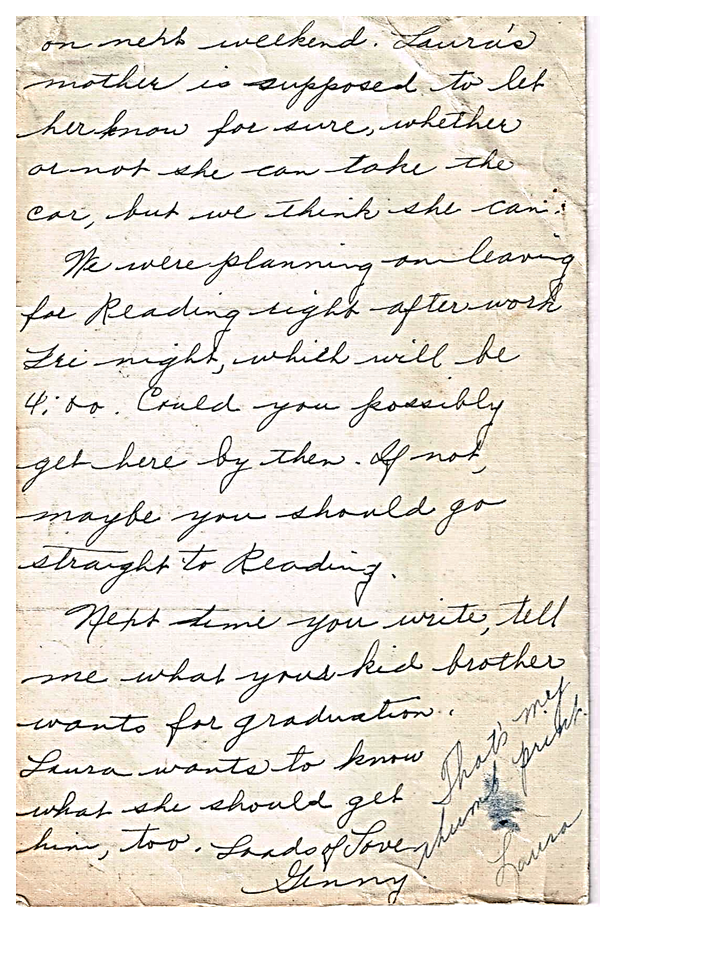 on next weekend. Laura's
mother is supposed to let
her know for sure, whether
or not she can take the
car, but we think she can.
We were planning on leaving
for Reading right after work
Fri night, which will be
4:00. Could you possibly
get here by then. If not,
maybe you should go
straight to Reading.
Next time you write, tell
me what your kid brother
wants for graduation.
Laura wants to know
what she should get
him, too. Loads of Love
Ginny.
That's my
thumb print.
Laura